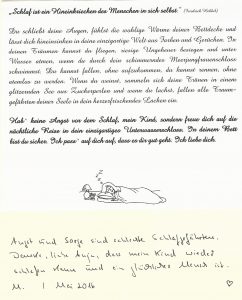 „Schlaf ist ein Hineinkriechen des Menschen in sich selbst."
Du schließt deine Augen, fühlst die wohlige Wärme deiner Bettdecke und
lässt dich hineinsinken in deine einzigartige Welt aus Farben und Gerüchen. In
deinen Träumen kannst du fliegen, riesige Ungeheuer besiegen und unter
Wasser atmen, wenn du durch dein schimmerndes Meerjungfrauenschloss
schwimmst. Du kannst fallen, ohne aufzukommen, du kannst rennen, ohne
atemlos zu werden. Wenn du weinst, sammeln sich deine Tränen in einem
glitzernden See aus Zuckerperlen und wenn du lachst, fallen alle Traum-
gefährten deiner Seele in dein herzerfrischendes Lachen ein.
Hab' keine Angst vor dem Schlaf, mein Kind, sondern freue dich auf die
nächtliche Reise in dein einzigartiges Unterwasserschloss. In deinem Bett
bist du sicher. Ich pass' auf dich auf, dass es dir gut geht. Ich liebe dich.
Angst und Sorge sind schlechte Schlafgefährten.
Danke, liebe Anja, dass mein Kind wieder
schlafen kann und ein glücklicher Mensch ist.
M. 1 Mai 2016